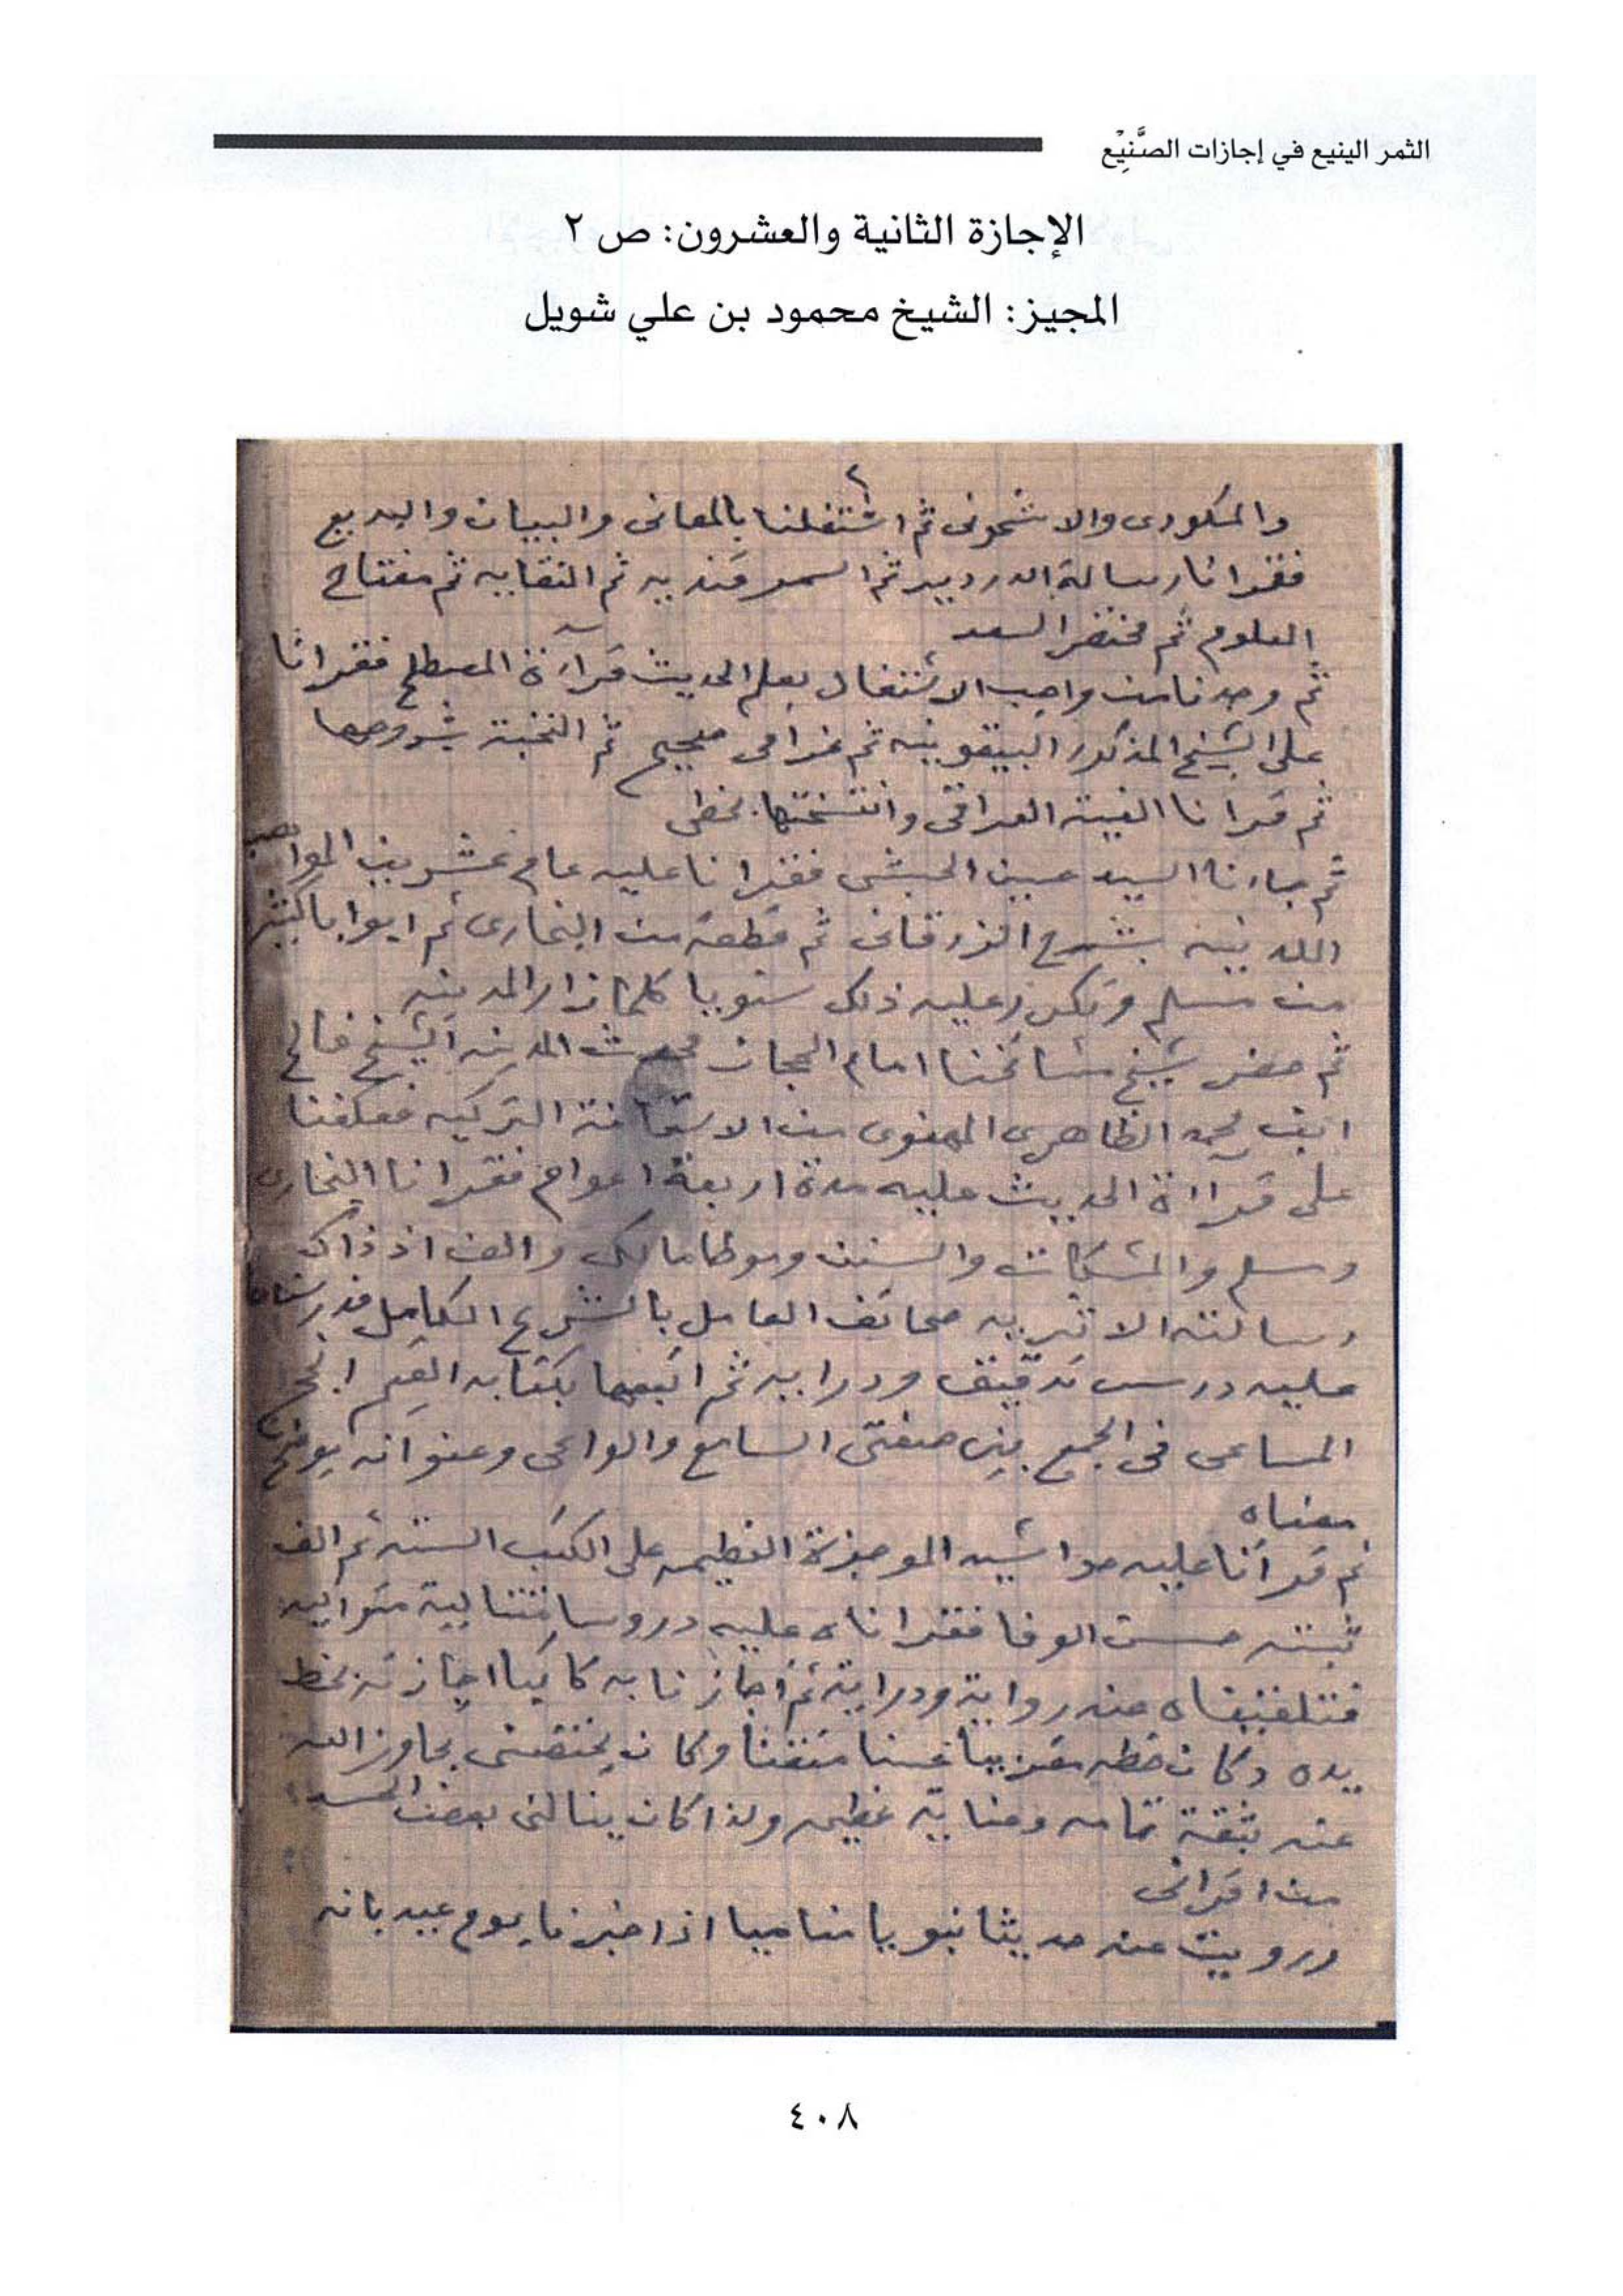 الثمر الينيع في إجازات الصَّنِيْع
الإجازة الثانية والعشرون: ص ٢
المجيز: الشيخ محمود بن علي شويل
٢
والمكودى والاشمونى ثم اشتغلنا بالمعانى والبيان والبديع
فقرانا رسالة الدردير ثم السمرقنديه ثم النقايه ثم مفتاح
العلوم ثم مختصر السعد
ثم وجدنا من واجب الاشتغال بعلم الحديث قرآءة المصطلح فقرانا
على الشيخ المذكور البيقونيه ثم غرامى صحيح ثم النخبة بشروحها
ثم قرانا الفية العراقى وانتسختها بخطى
ثم جاءنا السيد حسين الحبشى فقرانا عليه عام عشرين المواهب
اللدنيه بشرح الزرقانى ثم قطعة من البخارى ثم ابوابا كثيرة
من مسلم وتكرر عليه ذلك سنويا كلما زار المدينه
ثم حضر شيخ مشائخنا امام الحجاز محدث المدينه الشيخ فالح
ابن محمد الظاهرى المهنوى من الاستانة التركيه فعكفنا
على قراءة الحديث عليه مدة اربعة اعوام فقرانا البخارى
ومسلم والمشكات والسنن وموطا مالك والف اذ ذاك
رسالته الاثريه صحائف العامل بالشرع الكامل فدرسناها
عليه درس تدقيق ودرايه ثم اتبعها بكتابه القيم انجح
المساعى فى الجمع بين صفتى السامع والواعى وعنوانه يوضح
معناه
ثم قرآنا عليه حواشيه الموجزة العظيمه على الكتب الستة ثم الف
ثبته حسن الوفا فقراناه عليه دروسا متتالية متواليه
فتلقيناه عنه رواية ودراية ثم اجازنا به كاتبا اجازته بخط
يده وكان خطه مغربيا حسنا متقنا وكان يختصنى تجاوز الله
عنه بثقة تامه وعناية عظيمه ولذا كان ينالنى بعض الحسد
من اقرانى
ورويت عنه حديثا نبويا مناميا اذ اخبرنا يوم عيد بانه
٤٠٨